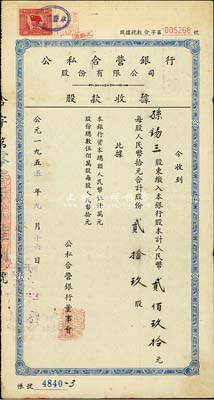 股款收據合字第005268號
公私合營銀行
股份有限公司
股款收據
今收到
孫錫三 股東繳入本銀行股本計人民幣貳佰玖拾元
每股人民幣拾元合計股份貳拾玖股
此據
本銀行資本總額人民幣伍仟萬元
股份總數伍佰萬股每股人民幣拾元
公私合營銀行董事會
公元一九五五年九月十六日
帳號 4840-3